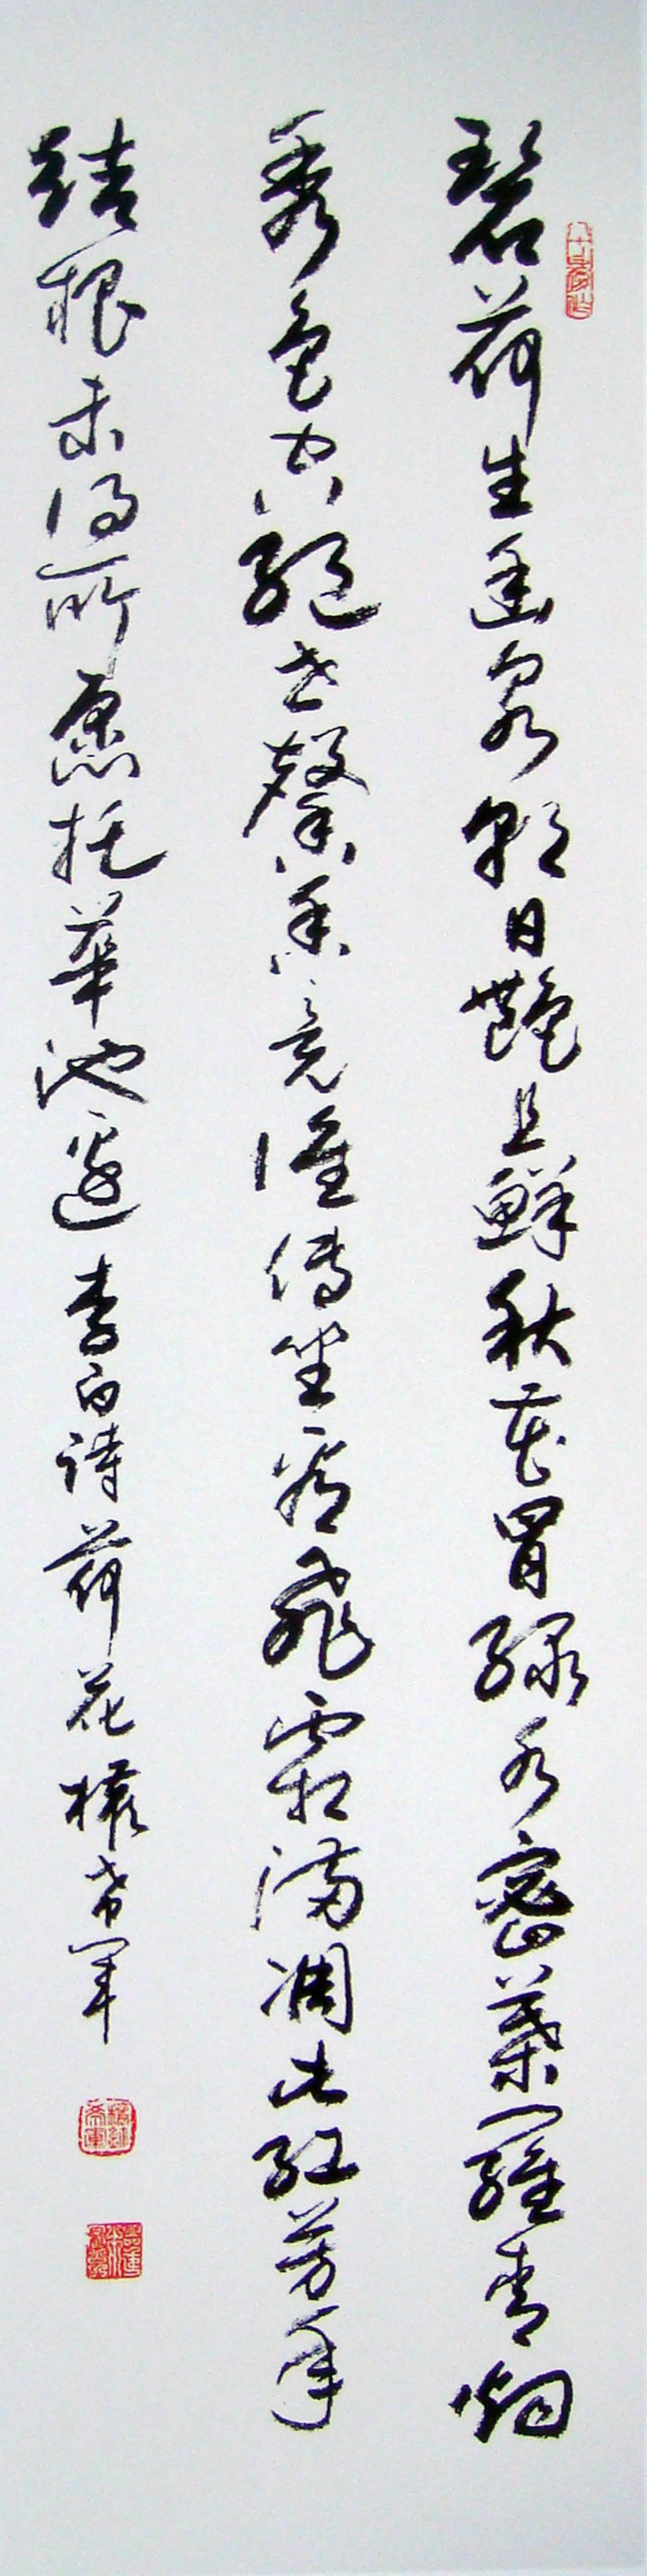 碧荷生幽泉朝日艷且鮮秋花冒綠水密葉羅青烟
秀色空絕世馨香竟誰傳坐看飛霜滿凋此紅芳年
結根未得所愿托華池邊 李白詩荷花 權希軍